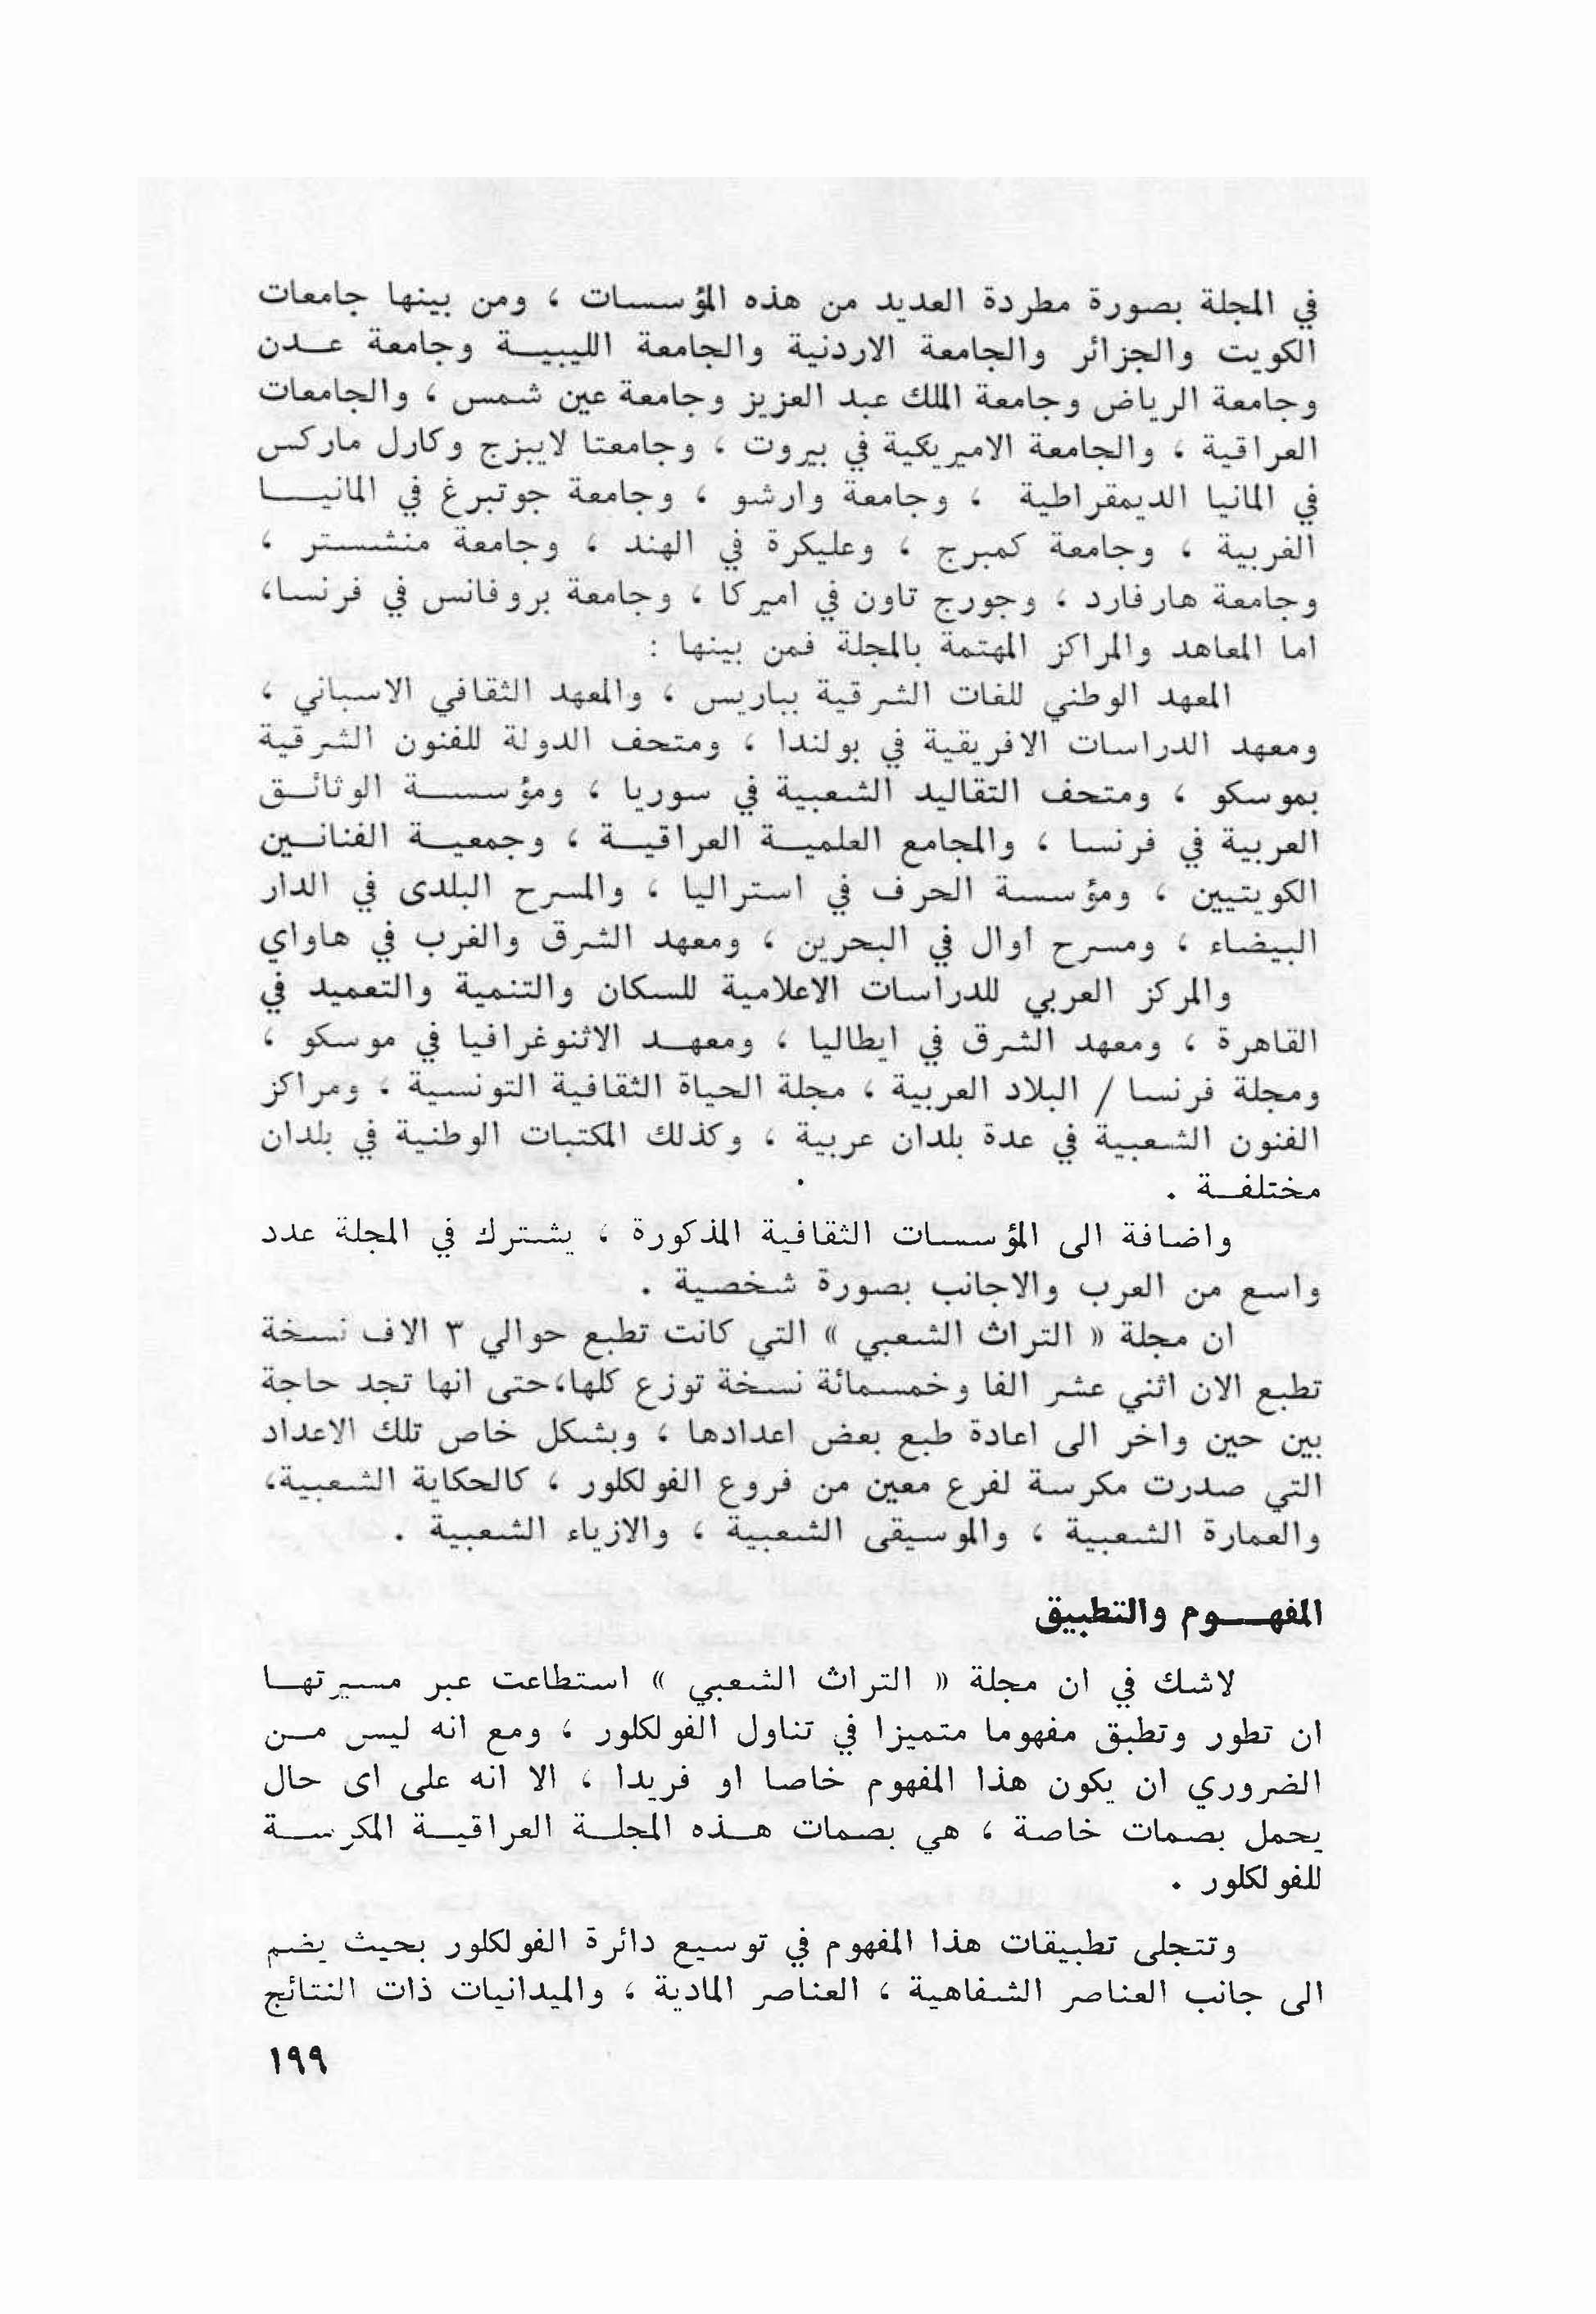 في المجلة بصورة مطردة العديد من هذه المؤسسات ، ومن بينها جامعات
الكويت والجزائر والجامعة الاردنية والجامعة الليبية وجامعة عدن
وجامعة الرياض وجامعة الملك عبد العزيز وجامعة عين شمس ، والجامعات
العراقية ، والجامعة الاميريكية في بيروت ، وجامعتا لايبزج وكارل ماركس
في المانيا الديمقراطية ، وجامعة وارشو ، وجامعة جوتبرغ في المانيا
الغربية ، وجامعة كمبرج ، وعليكرة في الهند ، وجامعة منشستر ،
وجامعة هارفارد ، وجورج تاون في اميركا ، وجامعة بروفانس في فرنسا،
اما المعاهد والمراكز المهتمة بالمجلة فمن بينها :
المعهد الوطني للغات الشرقية بباريس ، والمعهد الثقافي الاسباني ،
ومعهد الدراسات الافريقية في بولندا ، ومتحف الدولة للفنون الشرقية
بموسكو ، ومتحف التقاليد الشعبية في سوريا ، ومؤسسة الوثائق
العربية في فرنسا ، والمجامع العلمية العراقية ، وجمعية الفنانين
الكويتيين ، ومؤسسة الحرف في استراليا ، والمسرح البلدى في الدار
البيضاء ، ومسرح اوال في البحرين ، ومعهد الشرق والغرب في هاواي
والمركز العربي للدراسات الاعلامية للسكان والتنمية والتعميد في
القاهرة ، ومعهد الشرق في ايطاليا ، ومعهد الاثنوغرافيا في موسكو ،
ومجلة فرنسا / البلاد العربية ، مجلة الحياة الثقافية التونسية ، ومراكز
الفنون الشعبية في عدة بلدان عربية ، وكذلك المكتبات الوطنية في بلدان
مختلفة .
واضافة الى المؤسسات الثقافية المذكورة ، يشترك في المجلة عدد
واسع من العرب والاجانب بصورة شخصية .
ان مجلة « التراث الشعبي » التي كانت تطبع حوالي ٣ الاف نسخة
تطبع الان اثني عشر الفا وخمسمائة نسخة توزع كلها،حتى انها تجد حاجة
بين حين واخر الى اعادة طبع بعض اعدادها ، وبشكل خاص تلك الاعداد
التي صدرت مكرسة لفرع معين من فروع الفولكلور ، كالحكاية الشعبية،
والعمارة الشعبية ، والموسيقى الشعبية ، والازياء الشعبية .
المفهوم والتطبيق
لاشك في ان مجلة « التراث الشعبي » استطاعت عبر مسيرتها
ان تطور وتطبق مفهوما متميزا في تناول الفولكلور ، ومع انه ليس من
الضروري ان يكون هذا المفهوم خاصا او فريدا ، الا انه على اى حال
يحمل بصمات خاصة ، هي بصمات هذه المجلة العراقية المكرسة
للفولكلور .
وتتجلى تطبيقات هذا المفهوم في توسيع دائرة الفولكلور بحيث يضم
الى جانب العناصر الشفاهية ، العناصر المادية ، والميدانيات ذات النتائج
١٩٩